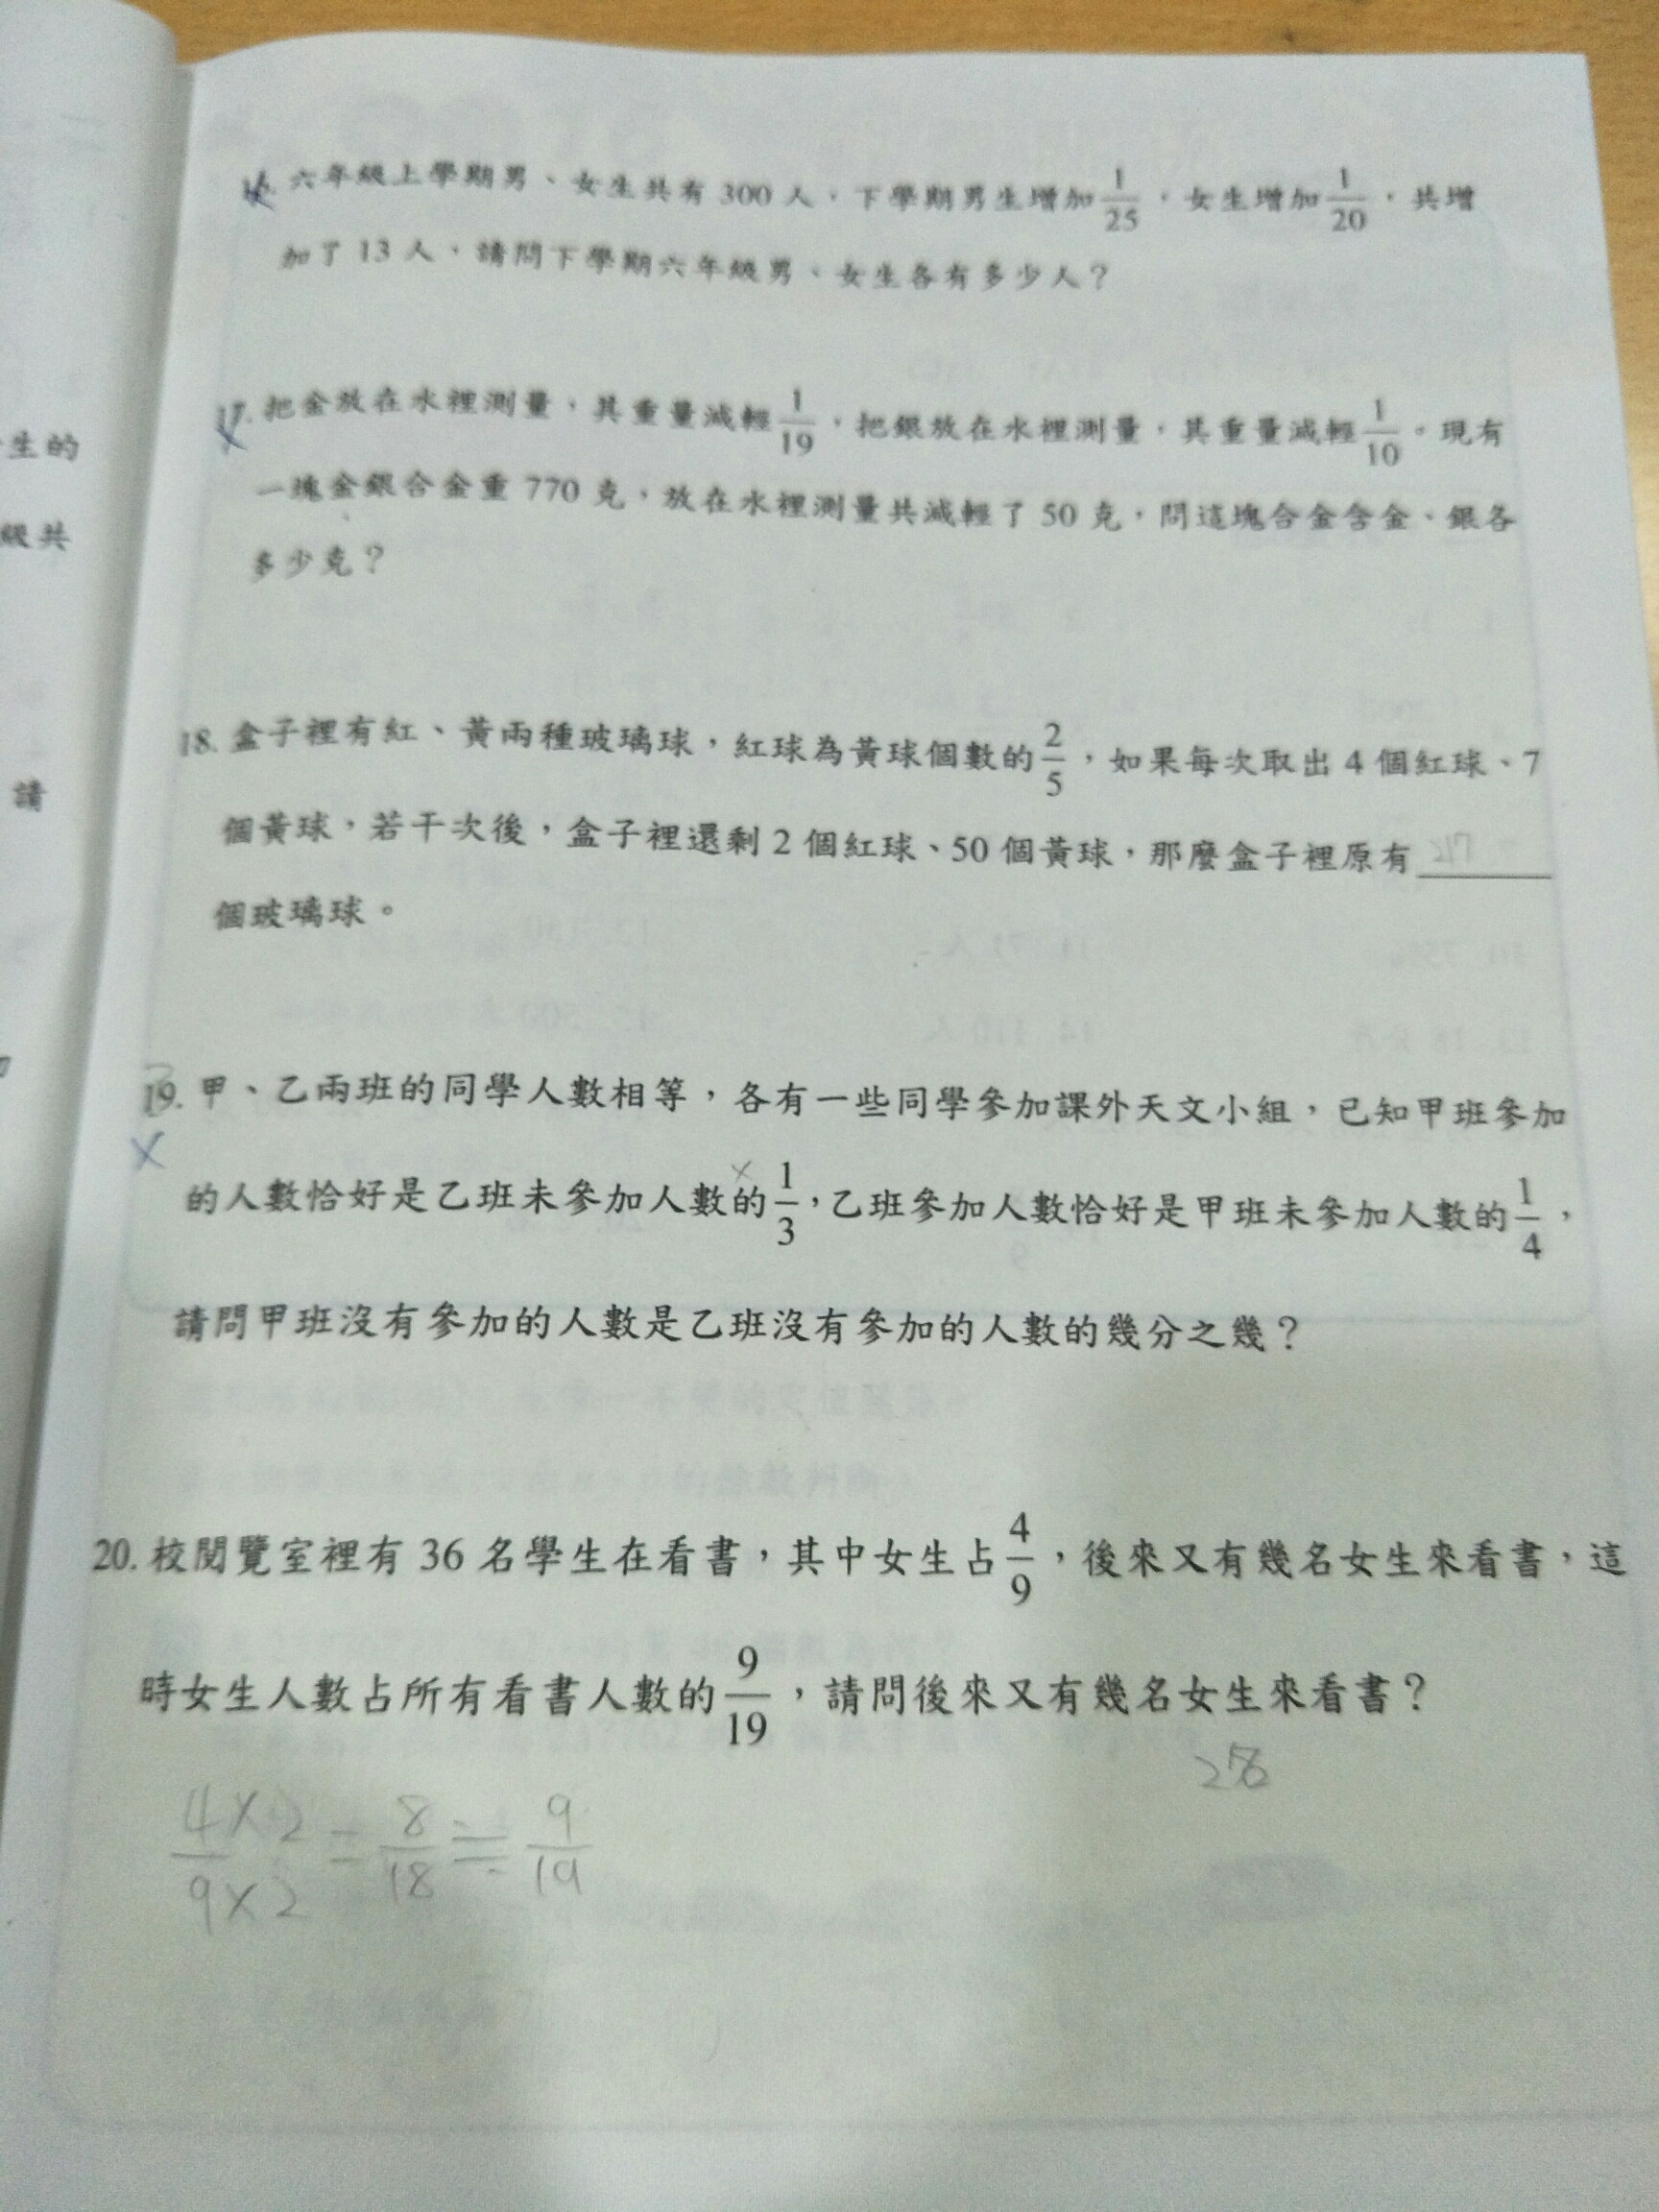 生的
級共
請
16. 六年級上學期男、女生共有 300 人,下學期男生增加 1/25,女生增加 1/20,共增
加了 13 人,請問下學期六年級男、女生各有多少人?
17. 把金放在水裡測量,其重量減輕 1/19,把銀放在水裡測量,其重量減輕 1/10。現有
一塊金銀合金重 770 克,放在水裡測量共減輕了 50 克,問這塊合金含金、銀各
多少克?
18. 盒子裡有紅、黃兩種玻璃球,紅球為黃球個數的 2/5,如果每次取出 4 個紅球、7
個黃球,若干次後,盒子裡還剩 2 個紅球、50 個黃球,那麼盒子裡原有
個玻璃球。
19. 甲、乙兩班的同學人數相等,各有一些同學參加課外天文小組,已知甲班參加
的人數恰好是乙班未參加人數的 1/3,乙班參加人數恰好是甲班未參加人數的 1/4,
請問甲班沒有參加的人數是乙班沒有參加的人數的幾分之幾?
20. 校閱覽室裡有 36 名學生在看書,其中女生占 4/9,後來又有幾名女生來看書,這
時女生人數占所有看書人數的 9/19,請問後來又有幾名女生來看書?
4×2/9×2 = 8/18 ≒ 9/19